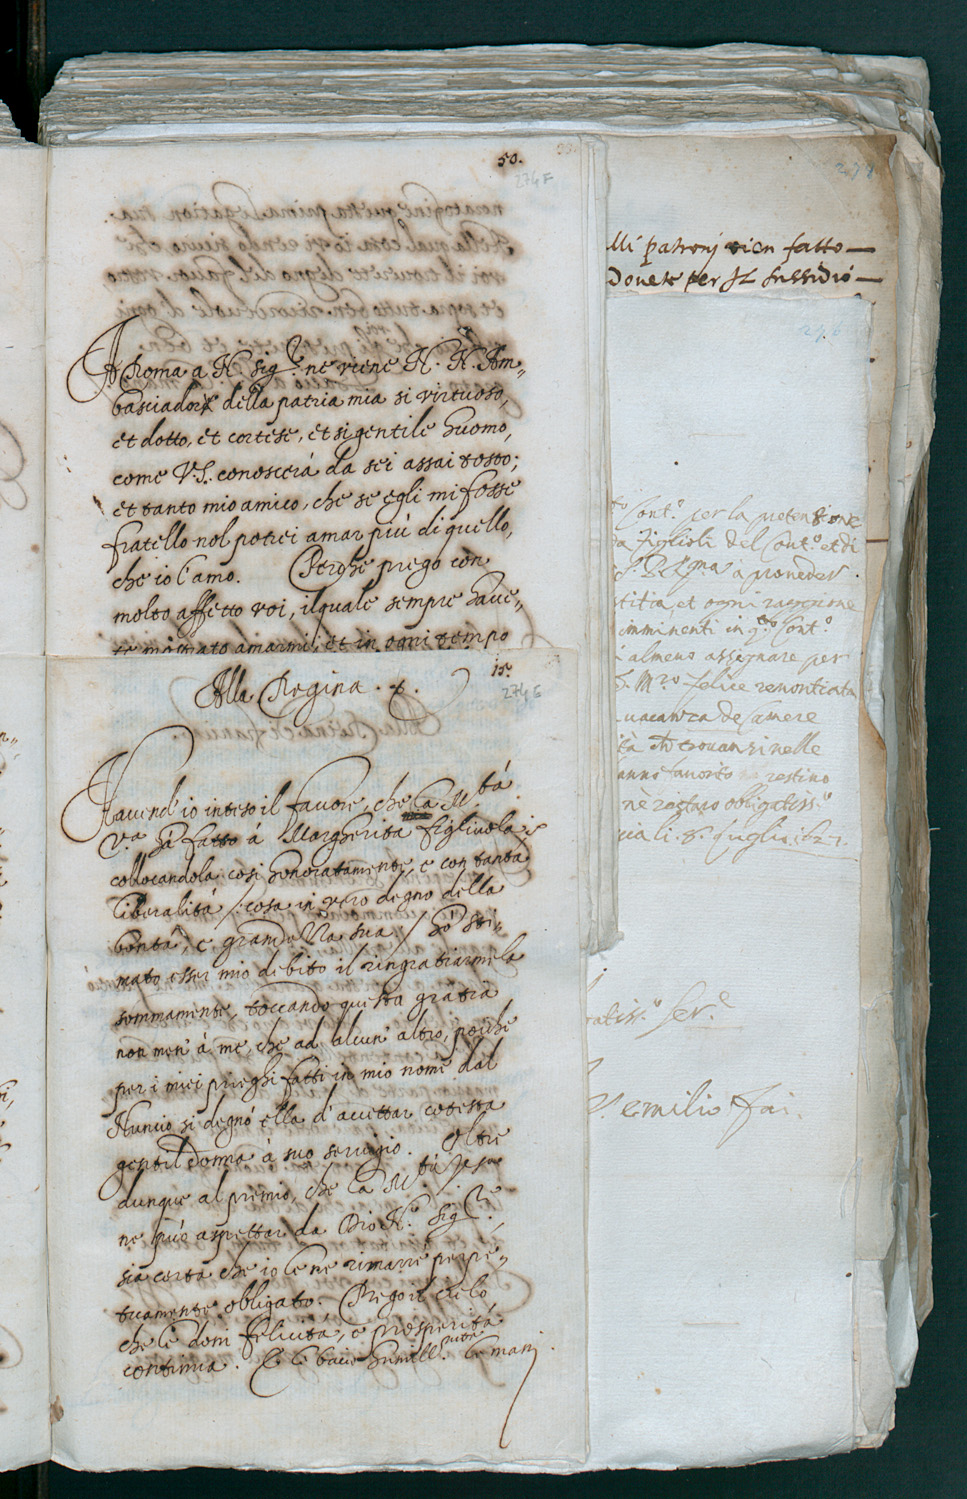 50.
274F
A Roma a N. Sig.re ne viene N. N. Am-
basciador della patria mia si virtuoso,
et dotto, et cortese, et si gentile huomo,
come V.S. conoscerà da sei assai tosto;
et tanto mio amico, che se egli mi fosse
fratello nol potrei amar più di quello,
che io l'amo. Perche prego con
molto affetto voi, il quale sempre have-
te mostrato amarmi, et in ogni tempo
15.
274G
Alla Regina
Havend' io inteso il favore, che la M.tà
V.ra hà fatto à Margherita figliuola
collocandola così honoratamente, e con tanta
liberalità /: cosa in vero degno della
bontà, e grandezza sua / hò sti-
mato esser mio debito il ringratiarmela
sommamente, toccando questa gratia
non men' à me, che ad alcun' altro, poiche
per i miei prieghi fatti in mio nome dal
Nuncio si degnò ella d' accettar cotesta
gentildonna à suo servigio. Oltre
dunque al premio, che la M.tà V.ra
ne può aspettar da Dio N.ro Sig.re,
sia certa che io le ne rimarrè perpe-
tuamente obligato. Prego il cielo
che le doni felicità, e prosperità
continua. E le bacio humill.mente le mani.
lli patronj vien fatto
Dovete per Il sussidio
276
Cont.o per la pretensione
figlioli del Cont.o et di
à proveder
stitia, et ogni raggione
imminenti in q.to Cont.o
almeno assegnare per
M.ro felice renontiata
vacanza de Camere
trovansi nelle
anno favorito restino
nè restarò obligatiss.o
li 8 luglio
ratiss.o Ser.e
emilio fai.